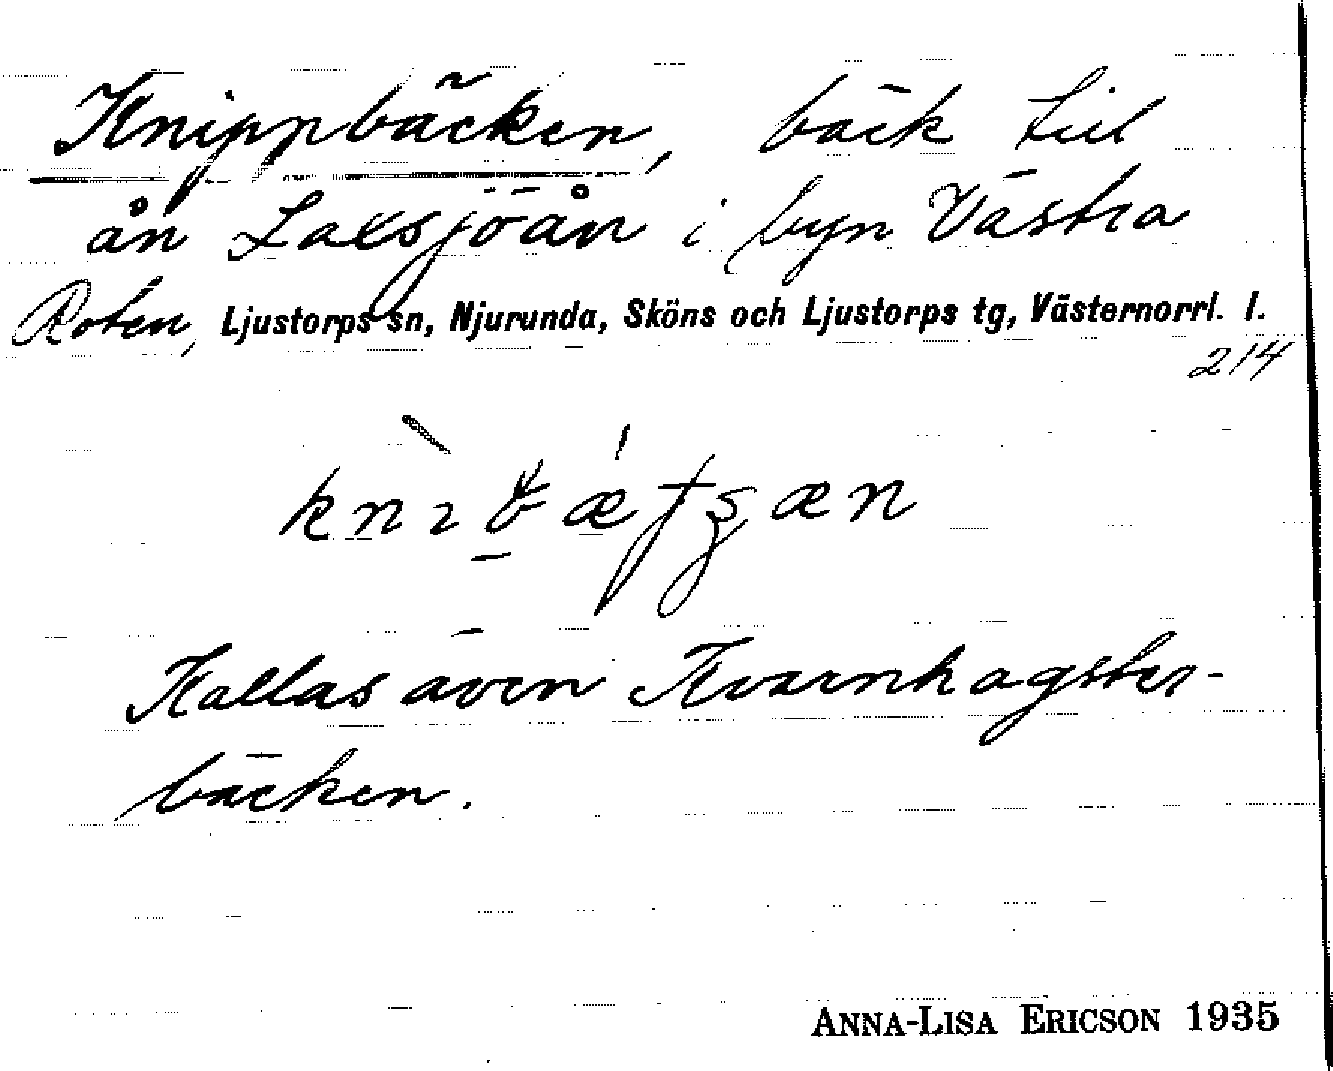 Knippbäcken, bäck till
ån Laxsjöån i byn Västra
Roten, Ljustorps sn, Njurunda, Sköns och Ljustorps tg, Västernorrl. l.
214
Kallas även Kvarnhagster-
bäcken.
ANNA-LISA ERICSON 1935